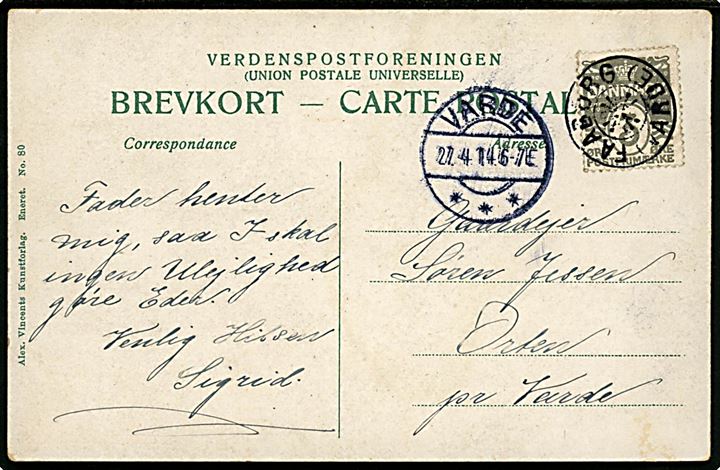 VERDENSPOSTFORENINGEN
(UNION POSTALE UNIVERSELLE)
BREVKORT — CARTE POSTALE
Correspondance
Adresse
VARDE
27.4.14.6-7E
FAABORG (JOHA
Fader henter
mig, saa I skal
ingen Ulejlighed
gøre Eder.
Venlig Hilsen
Sigrid.
Gaardejer
Søren Jessen
Orten
pr Varde
Alex. Vincents Kunstforlag. Eneret. No. 80